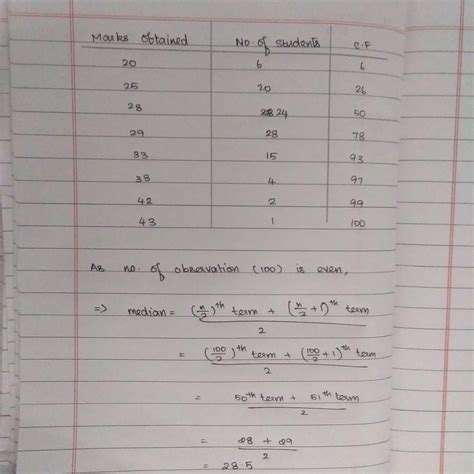 Marks Obtained No. of Students C.F
20 6 6
25 20 26
28 24 50
29 28 78
33 15 93
38 4 97
42 2 99
43 1 100
As no. of observation (100) is even,
=> median = (n/2)th term + (n/2 + 1)th term / 2
= (100/2)th term + (100/2 + 1)th term / 2
= 50th term + 51th term / 2
= 28 + 29 / 2
= 28.5